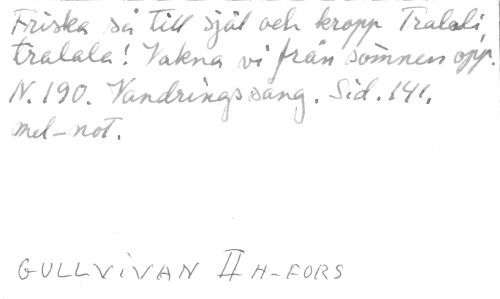 Friska så till själ och kropp Tralali,
tralala! Vakna vi från sömnen opp.
N. 190. Vandringssång. Sid. 141.
mel-not.
GULLVIVAN II H-FORS